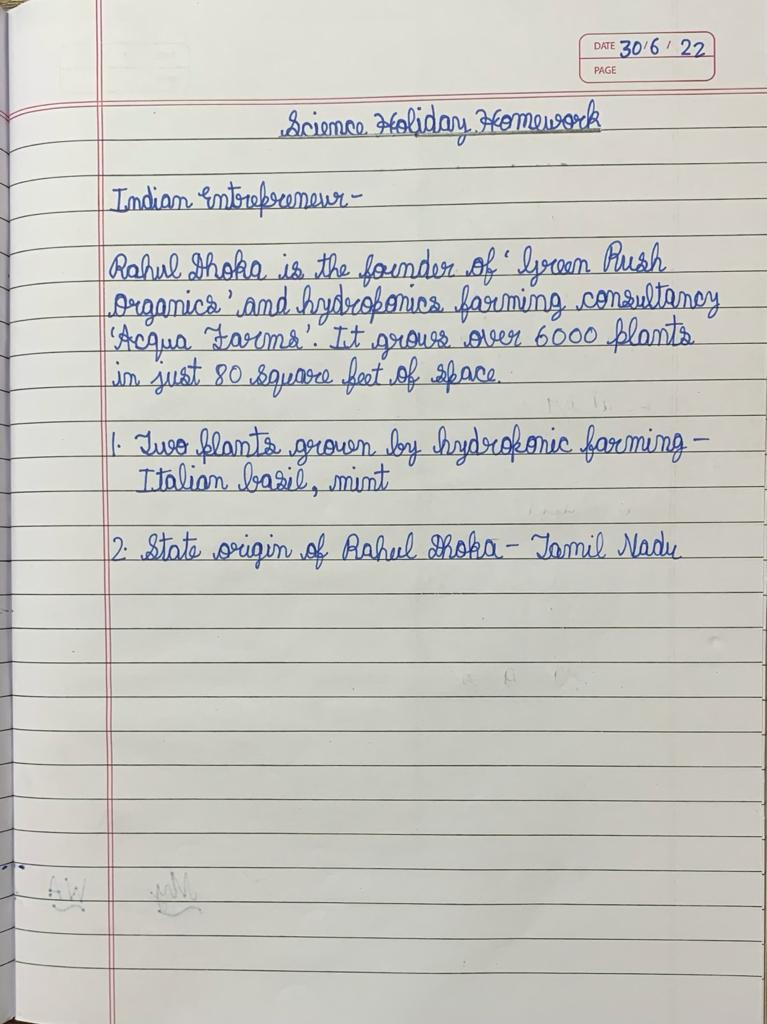 DATE 30/6/22
PAGE
Science Holiday Homework
Indian Entrepreneur-
Rahul Dhoka is the founder of 'Green Rush
Organics' and hydroponics farming consultancy
'Acqua Farms'. It grows over 6000 plants
in just 80 square feet of space.
1. Two plants grown by hydroponic farming -
Italian basil, mint
2. State origin of Rahul Dhoka - Tamil Nadu